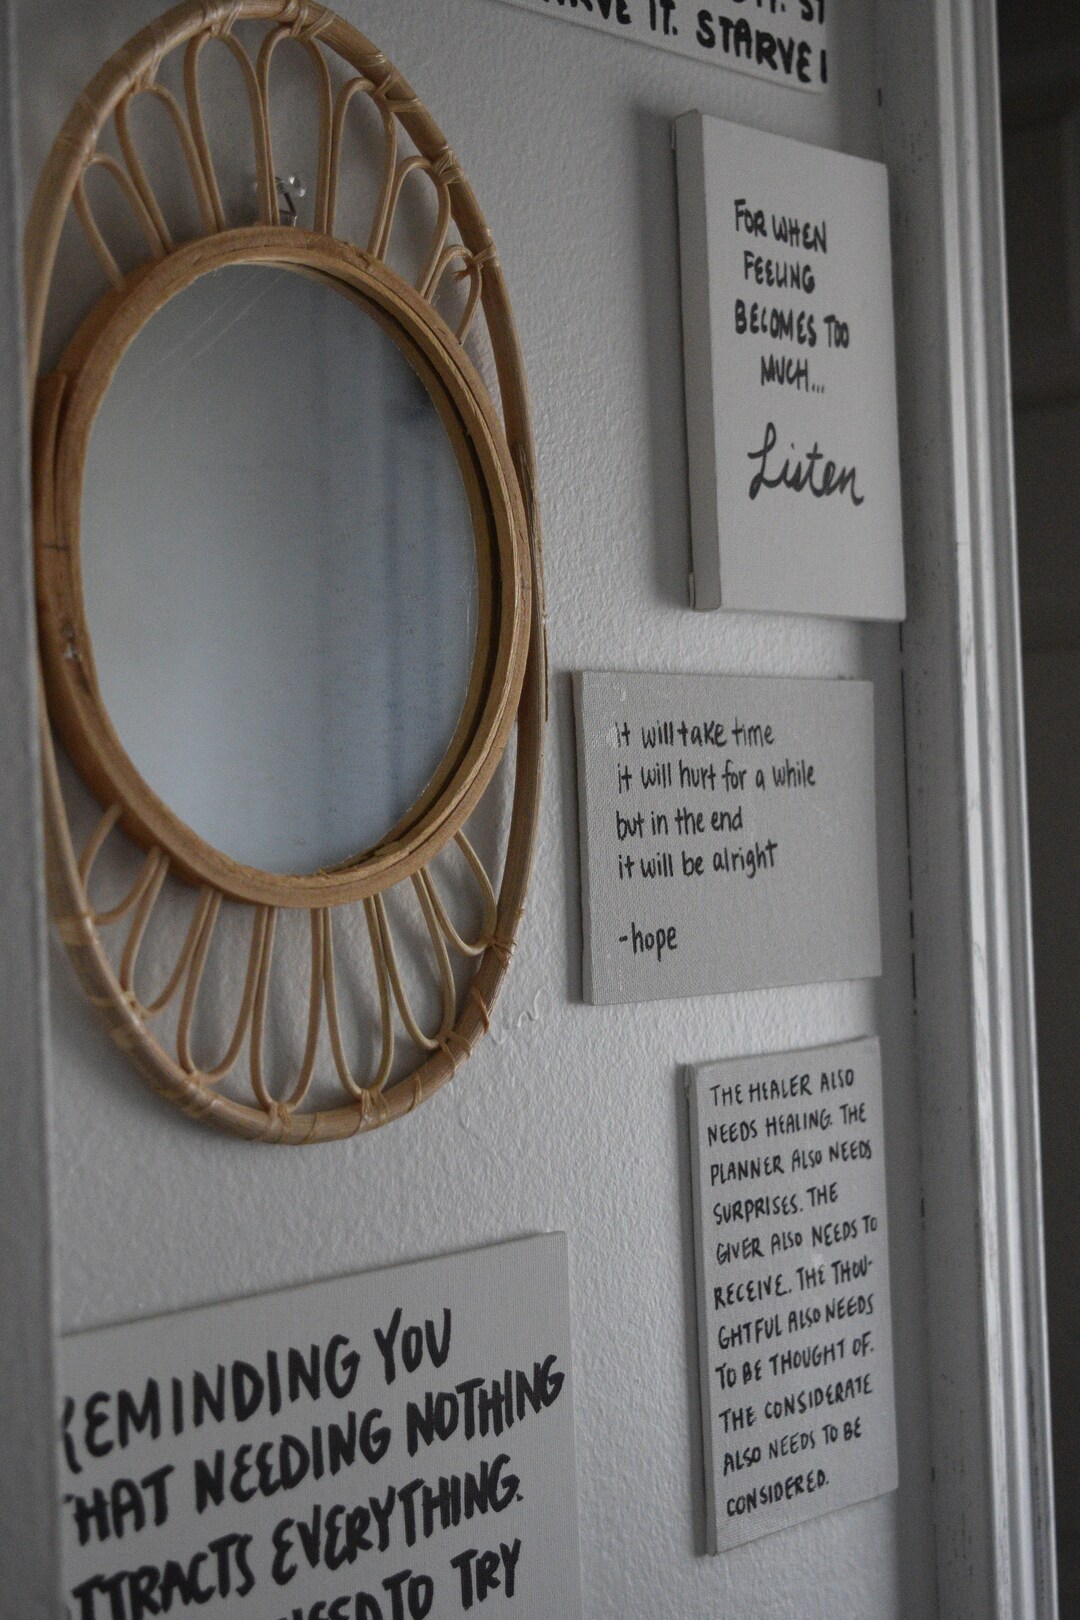 IT. STARVE
FOR WHEN
FEELING
BECOMES TOO
MUCH...
Listen
it will take time
it will hurt for a while
but in the end
it will be alright
-hope
THE HEALER ALSO
NEEDS HEALING. THE
PLANNER ALSO NEEDS
SURPRISES. THE
GIVER ALSO NEEDS TO
RECEIVE. THE THOU-
GHTFUL ALSO NEEDS
TO BE THOUGHT OF.
THE CONSIDERATE
ALSO NEEDS TO BE
CONSIDERED.
REMINDING YOU
THAT NEEDING NOTHING
ATTRACTS EVERYTHING.
NEED TO TRY